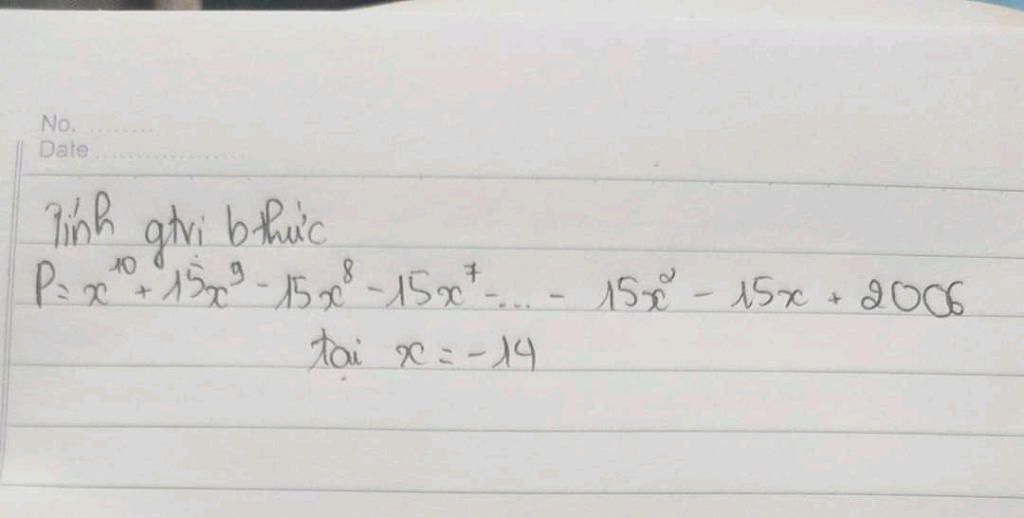 No. ..........
Date ....................
Tính gtrị bthức
P = x¹⁰ + 15x⁹ - 15x⁸ - 15x⁷ - ... - 15x² - 15x + 2006
tại x = -14